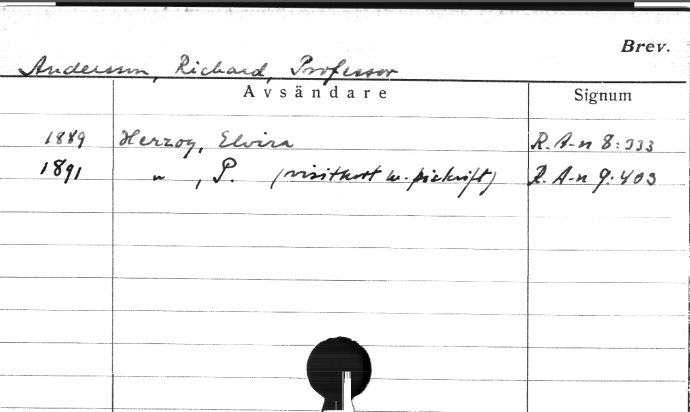 Brev.
Andersson, Richard, Professor
Avsändare Signum
1889 Herzog, Elvira R. A-n 8:333
1891 " , P. (visitkort m. påskrift) R. A-n 9:403